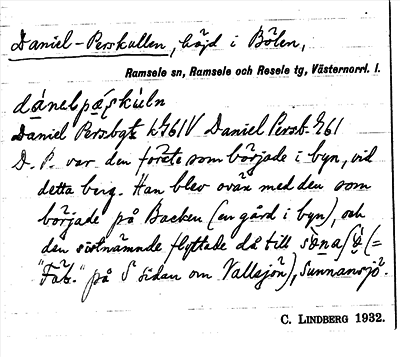 Daniel-Perskullen, höjd i Bölen,
Ramsele sn, Ramsele och Resele tg, Västernorrl. l.
Daniel Persbgt k G61V Daniel Persb. G61
D. P. var den förste som började i byn, vid
detta berg. Han blev ovän med den som
började på Backen (en gård i byn), och
den sistnämnde flyttade då till (=
på S sidan om Vallsjön), Sunnansjö.
C. LINDBERG 1932.